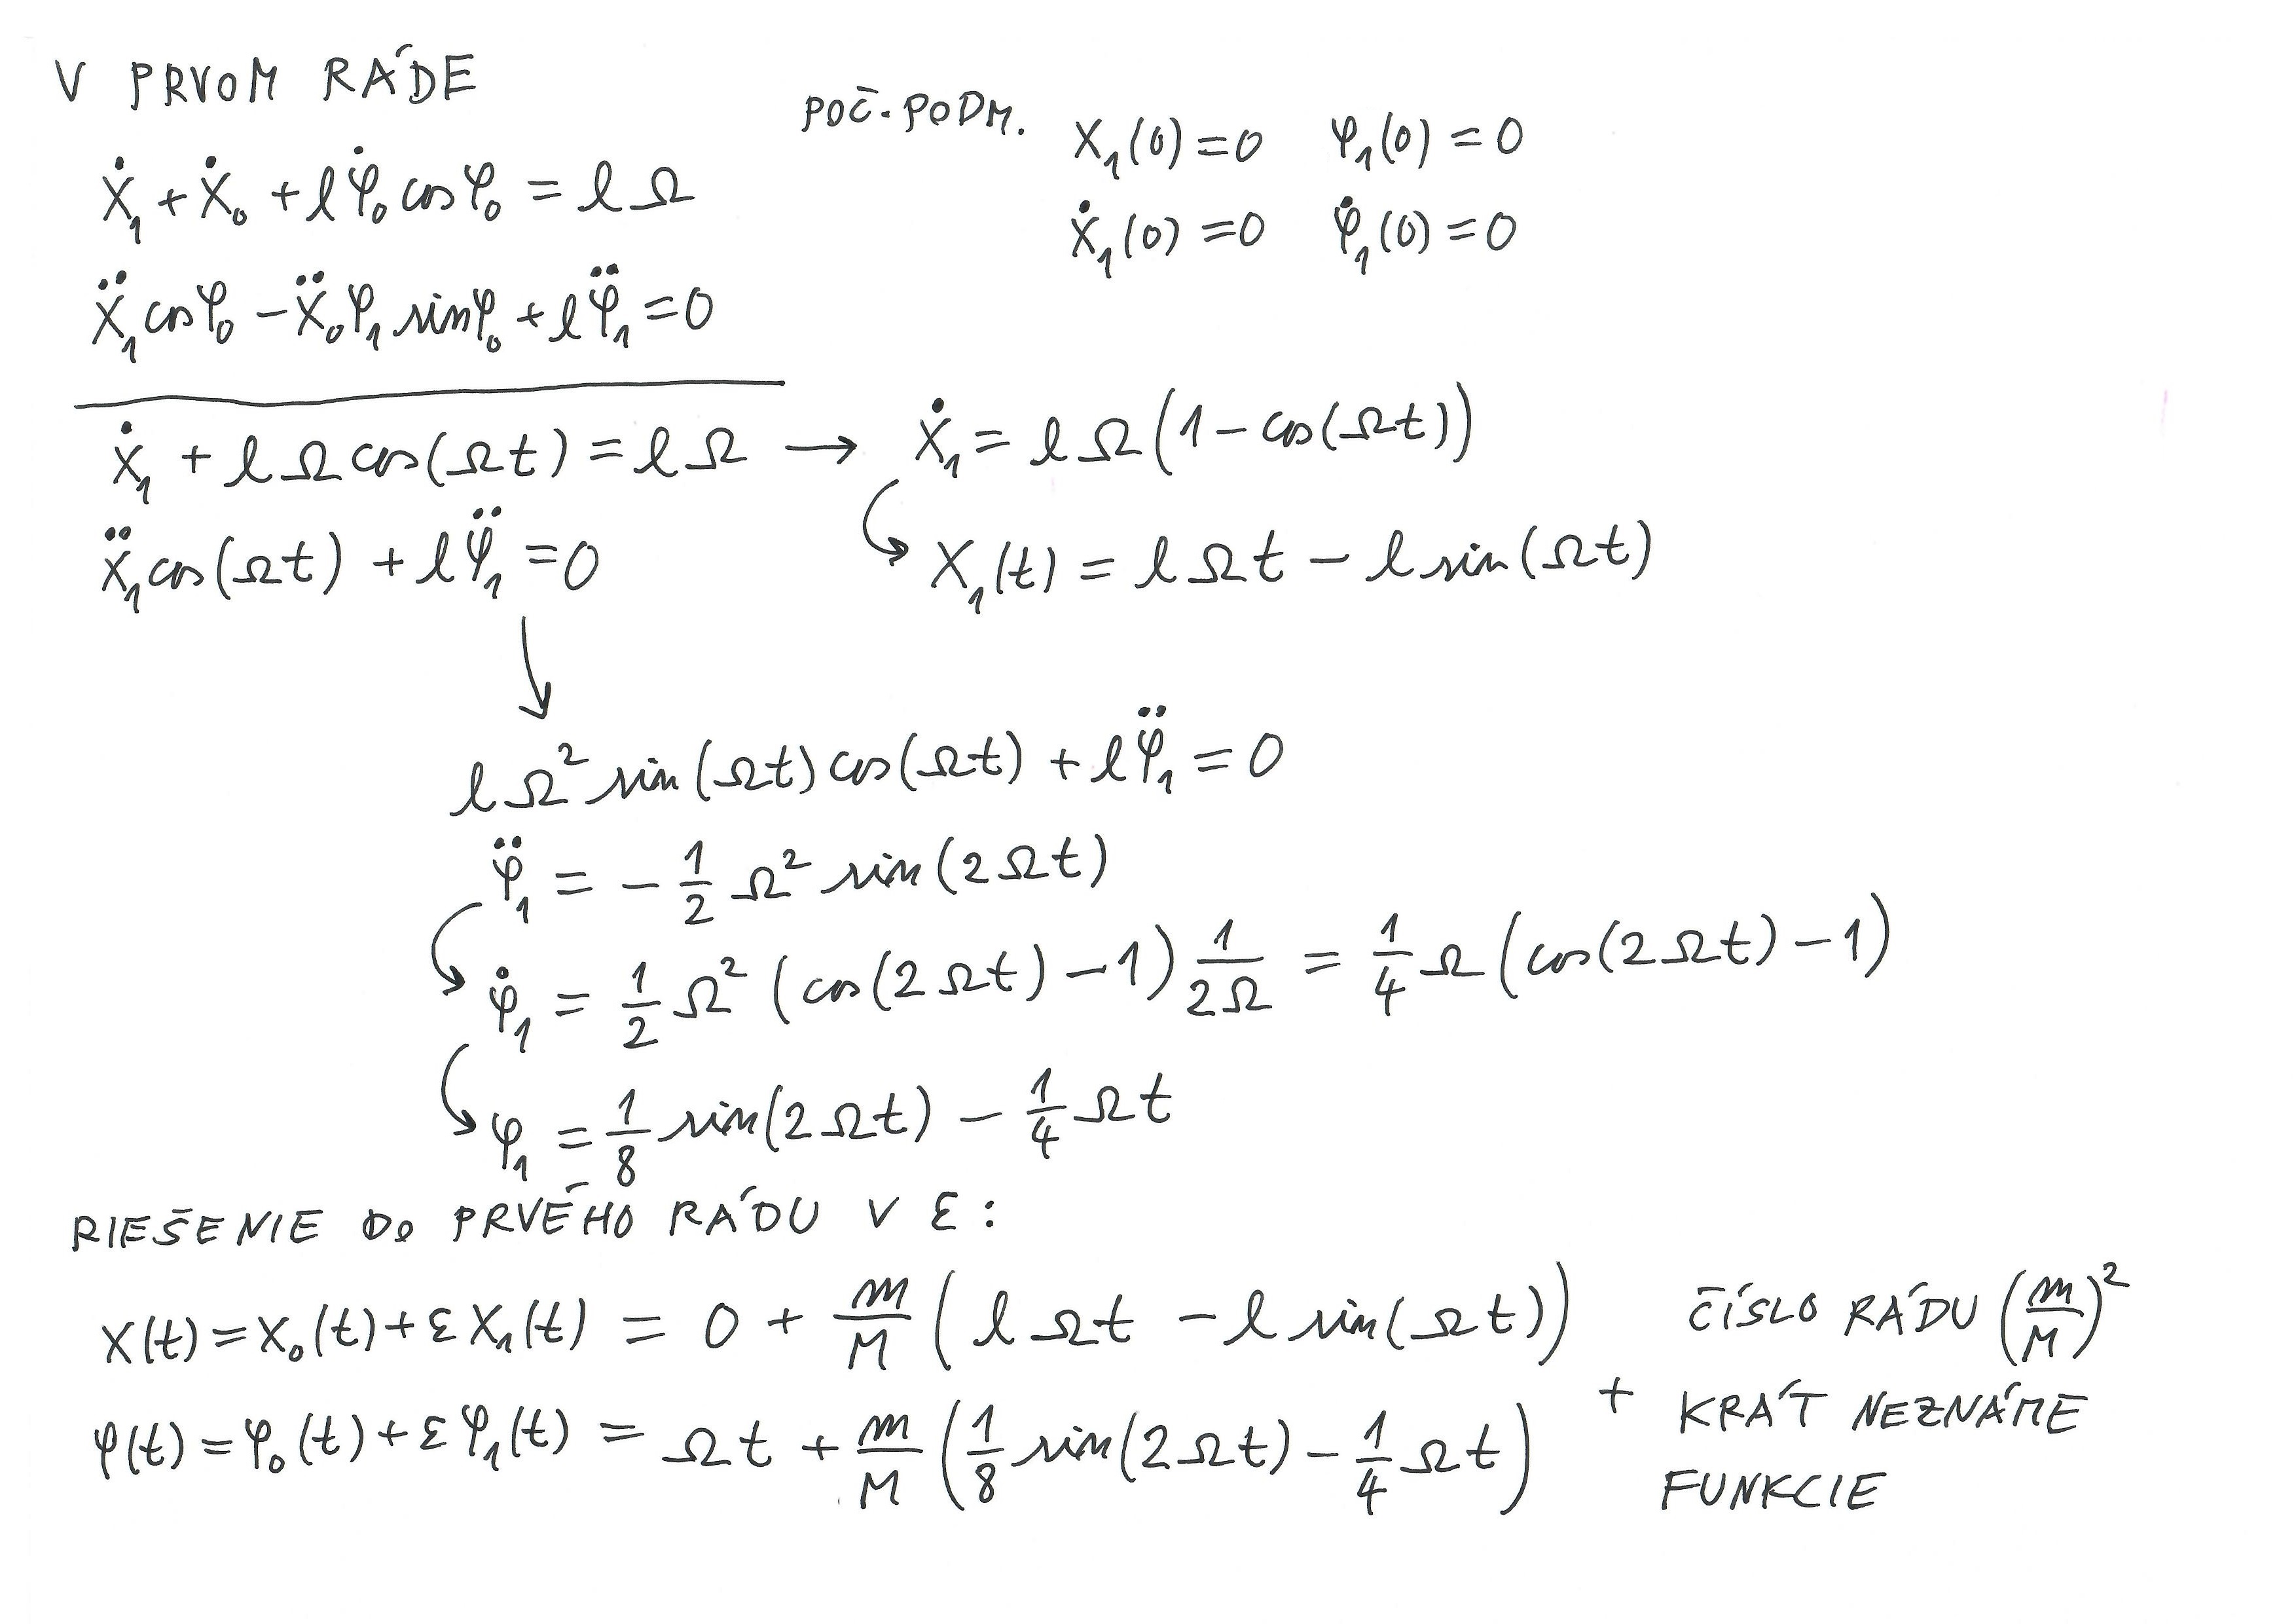 V PRVOM RÁDE
POČ. PODM. X₁(0)=0 φ₁(0)=0
Ẋ₁(0)=0 φ̇₁(0)=0
Ẋ₁+Ẋ₀+lφ̇₀cosφ₀=lΩ
Ẍ₁cosφ₀-Ẍ₀φ₁sinφ₀+lφ̈₁=0
Ẋ₁+lΩcos(Ωt)=lΩ → Ẋ₁=lΩ(1-cos(Ωt))
Ẍ₁cos(Ωt)+lφ̈₁=0
X₁(t)=lΩt-l sin(Ωt)
lΩ² sin(Ωt)cos(Ωt)+lφ̈₁=0
φ̈₁=-1/2 Ω² sin(2Ωt)
φ̇₁=1/2 Ω²(cos(2Ωt)-1) 1/2Ω = 1/4 Ω(cos(2Ωt)-1)
φ₁=1/8 sin(2Ωt)-1/4 Ωt
RIEŠENIE DO PRVÉHO RÁDU V ε:
X(t)=X₀(t)+εX₁(t)=0+m/M(lΩt-l sin(Ωt))
φ(t)=φ₀(t)+εφ₁(t)=Ωt+m/M(1/8 sin(2Ωt)-1/4 Ωt)
+
ČÍSLO RÁDU (m/M)²
KRÁT NEZNÁME
FUNKCIE